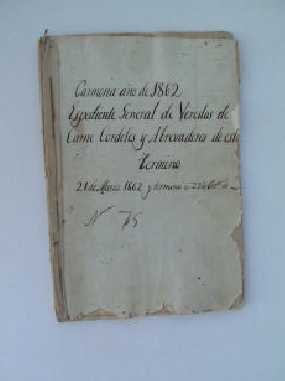 Carmona año de 1862
Expediente General de Veredas de
Carne Cordeles y Abrevaderos de este
Termino
21 de Marzo 1862 y termino en 22 de
Nº 75